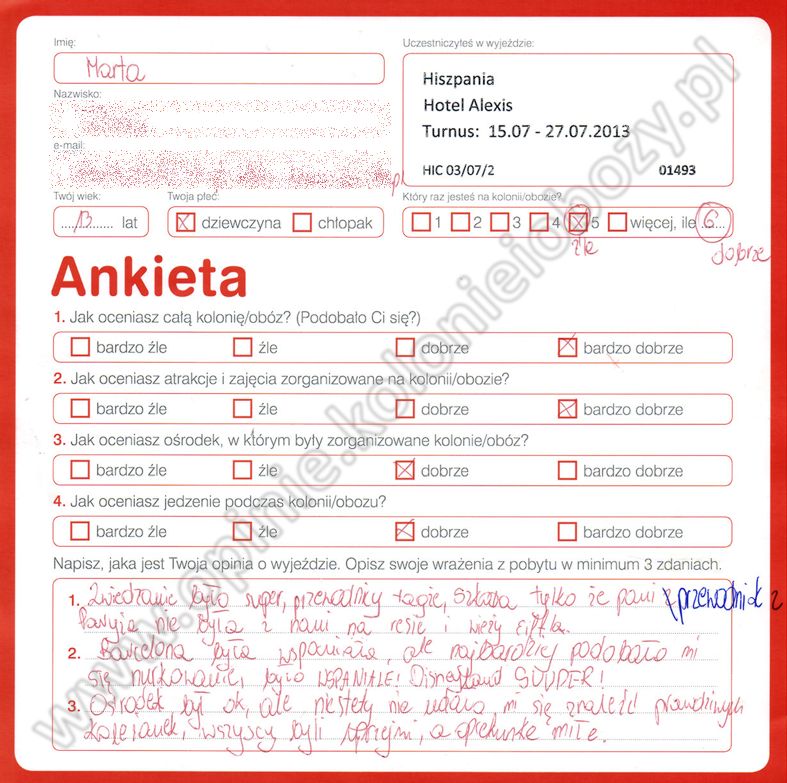 Imię:
Marta
Nazwisko:
e-mail:
Uczestniczyłeś w wyjeździe:
Hiszpania
Hotel Alexis
Turnus: 15.07 - 27.07.2013
HIC 03/07/2 01493
Twój wiek: Twoja płeć: Który raz jesteś na kolonii/obozie?
13 lat dziewczyna chłopak 1 2 3 4 5 więcej, ile 6
źle dobrze
Ankieta
1. Jak oceniasz całą kolonię/obóz? (Podobało Ci się?)
bardzo źle źle dobrze bardzo dobrze
2. Jak oceniasz atrakcje i zajęcia zorganizowane na kolonii/obozie?
bardzo źle źle dobrze bardzo dobrze
3. Jak oceniasz ośrodek, w którym były zorganizowane kolonie/obóz?
bardzo źle źle dobrze bardzo dobrze
4. Jak oceniasz jedzenie podczas kolonii/obozu?
bardzo źle źle dobrze bardzo dobrze
Napisz, jaka jest Twoja opinia o wyjeździe. Opisz swoje wrażenia z pobytu w minimum 3 zdaniach.
1. Zwiedzanie było super, przewodnicy także, szkoda tylko że pani przewodnik z
Paryża nie była z nami na rejsie i wieży Eiffla.
2. Barcelona była wspaniała, ale najbardziej podobało mi
się nurkowanie, było WSPANIALE! Disneyland SUUPER!
3. Ośrodek był ok, ale niestety nie udało mi się znaleźć prawdziwych
koleżanek, wszyscy byli uprzejmi, a opiekunke miłe.
www.opinie.kolonieiobozy.pl